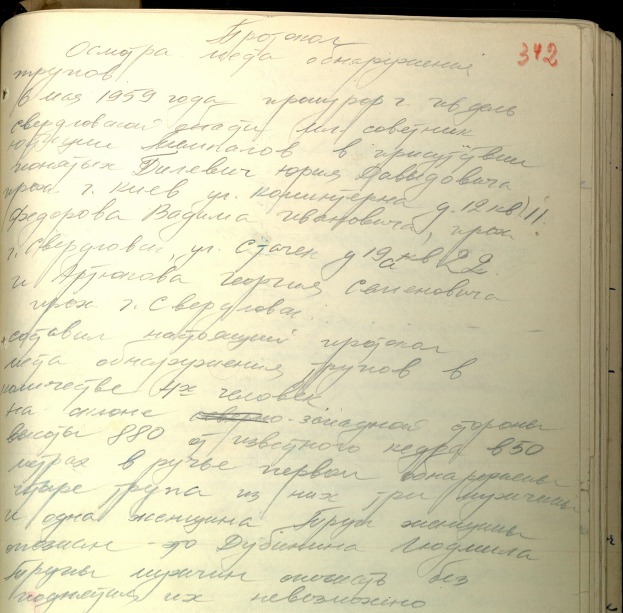 342
Протокол
Осмотра места обнаружения
трупов
6 мая 1959 года прокурор г. Ивдель
свердловской области мл советник
юстиции Темпалов в присутствии
понятых Юрия Давыдовича
прож. г. Киев ул. Коминтерна д. 12 кв 11.
Федорова Вадима Ивановича, прож.
г. Свердловск, ул. Стачек д 19а кв 22.
и Артюкова Георгия Семеновича
прож г. Свердловск.
составил настоящий протокол
места обнаружения трупов в
количестве 4х человек
На склоне западной стороны
высоты 880 от известного кедра в 50
метрах в ручье первом обнаружены
четыре трупа из них три мужчины
и одна женщина Труп женщины
опознан - это Дубинина Людмила
Трупы мужчин опознать без
поднятия их невозможно